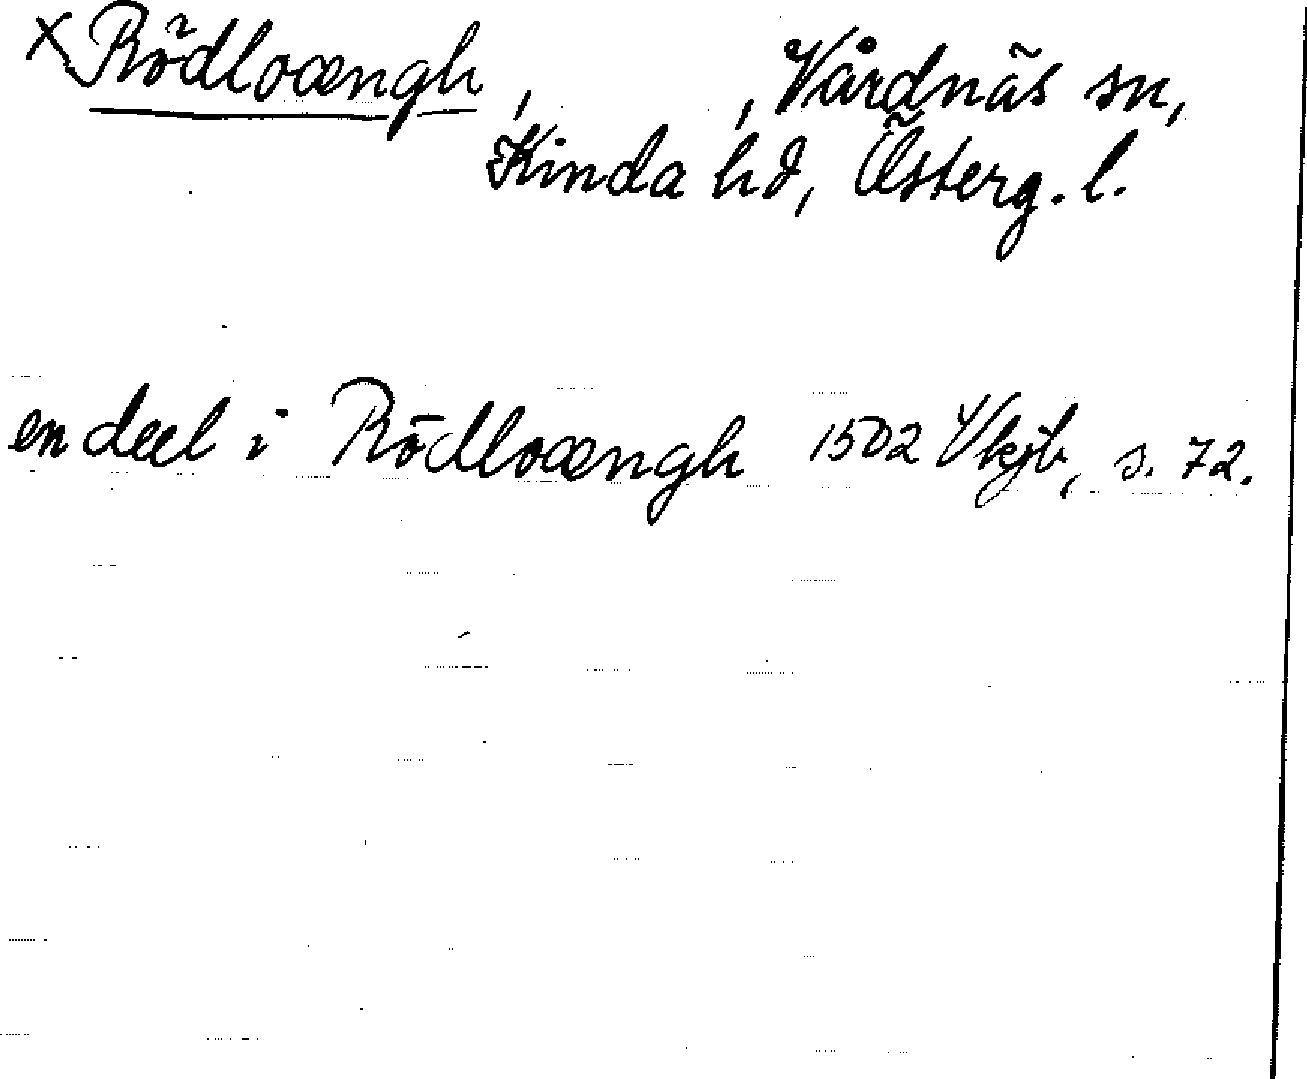 ×Rödloængh, , Vårdnäs sn,
Kinda hd, Österg. l.
en deel i Rödloængh 1502 Vkjb, s. 72.